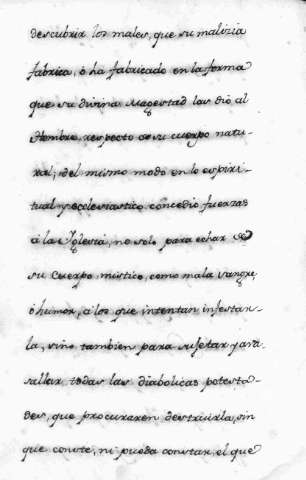 descubrir los males, que su malizia
fabrica, ò ha fabricado en la forma
que su divina Magestad las dió al
Hombre, respecto de su cuerpo natu-
ral; del mismo modo en lo espiri-
tual y ecclesiastico concedio fuerzas
á la Yglesia, no solo para echar de
su cuerpo mistico, como mala sangre,
ò humor, a los que intentan infestar-
la, sino tambien para sujetar y ava-
sallar todas las diabolicas potesta-
des, que procuraren destruirla, sin
que conste, ni pueda constar, el que